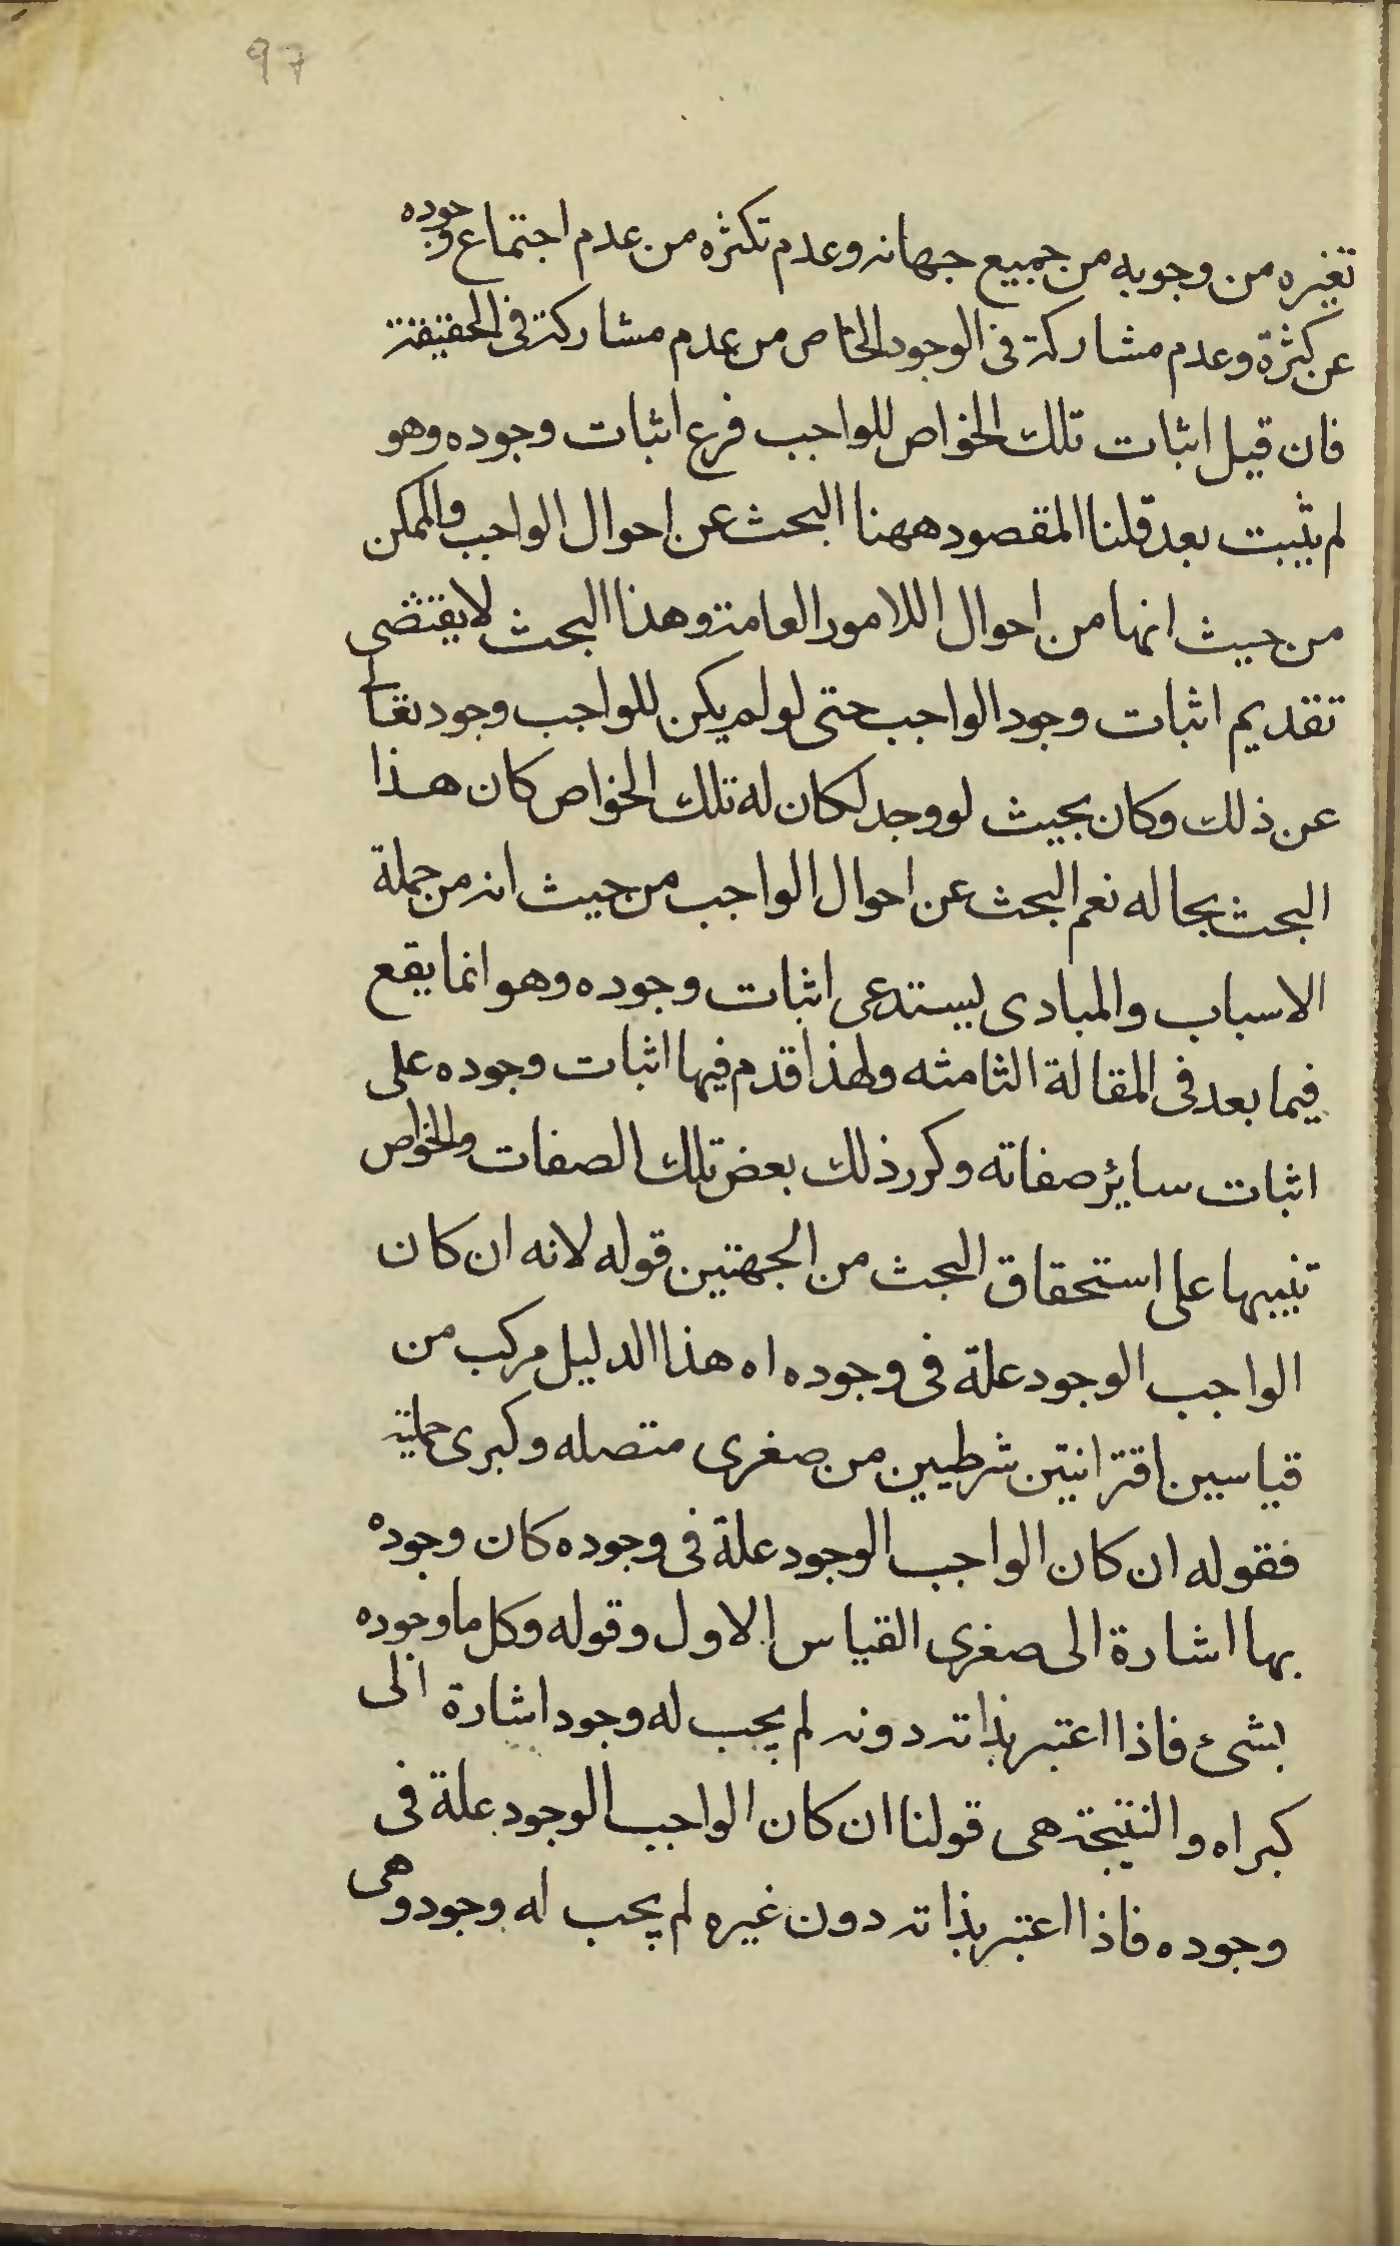 97
تغيره من وجوبه من جميع جهاته وعدم تكثره من عدم اجتماع وجوده
عن كثرة وعدم مشاركة فى الوجود الخاص من عدم مشاركة فى الحقيقة
فان قيل اثبات تلك الخواص للواجب فرع اثبات وجوده وهو
لم يثبت بعد قلنا المقصود ههنا البحث عن احوال الواجب والممكن
من حيث انها من احوال اللامور العامة وهذا البحث لا يقتضى
تقديم اثبات وجود الواجب حتى لو لم يكن للواجب وجود تعالى
عن ذلك وكان بحيث لو وجد لكان له تلك الخواص كان هذا
البحث بحاله نعم البحث عن احوال الواجب من حيث انه من جملة
الاسباب والمبادى يستدعى اثبات وجوده وهو انما يقع
فيما بعد فى المقالة الثامنه ولهذا قدم فيها اثبات وجوده على
اثبات سايئر صفاته وكرر ذلك بعض تلك الصفات والخواص
تنبيها على استحقاق البحث من الجهتين قوله لانه ان كان
الواجب الوجود علة فى وجوده اه هذا الدليل مركب من
قياسين اقترانيتن شرطيين من صغرى متصله وكبرى حملية
فقوله ان كان الواجب الوجود علة فى وجوده كان وجوده
بها اشارة الى صغرى القياس الاول وقوله وكل ما وجوده
بشىء فاذا اعتبر بذاته دونه لم يجب له وجود اشارة الى
كبراه والنتيجة هى قولنا ان كان الواجب الوجود علة فى
وجوده فاذا اعتبر بذاته دون غيره لم يجب له وجود وهى